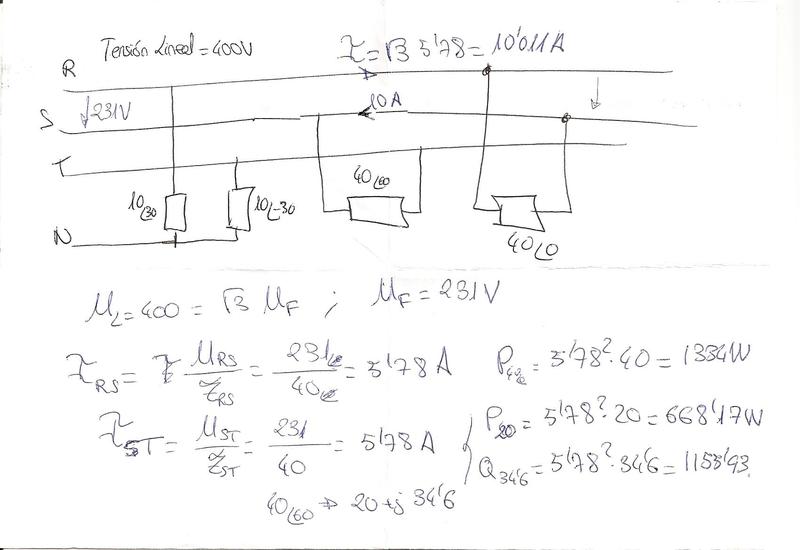 Tensión Lineal = 400V
I = √3 5'78 = 10'011A
R
231V
10A
S
T
40∠60
10∠30
10∠-30
N
40∠0
U_L = 400 = √3 U_F ; U_F = 231V
I_RS = U_RS / Z_RS = 231 / 40 = 5'78 A
P_40 = 5'78² · 40 = 1334W
I_ST = U_ST / Z_ST = 231 / 40 = 5'78 A
P_20 = 5'78² · 20 = 668'17W
Q_34'6 = 5'78² · 34'6 = 1155'93
40∠60 → 20 + j 34'6